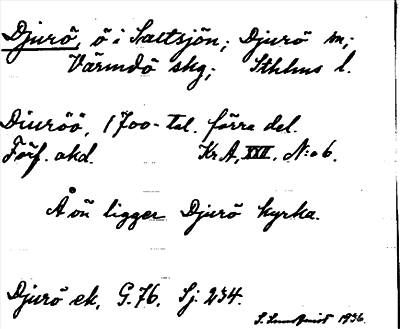 Djurö, ö i Saltsjön; Djurö m;
Värmdö skg; Sthlms l.
Diuröö, 1700-tal. förra del.
Förf. okd. Kr A, XXII. N:o 6.
Å ön ligger Djurö kyrka.
Djurö ek, G. 76. Sj. 234.
S. 1936.